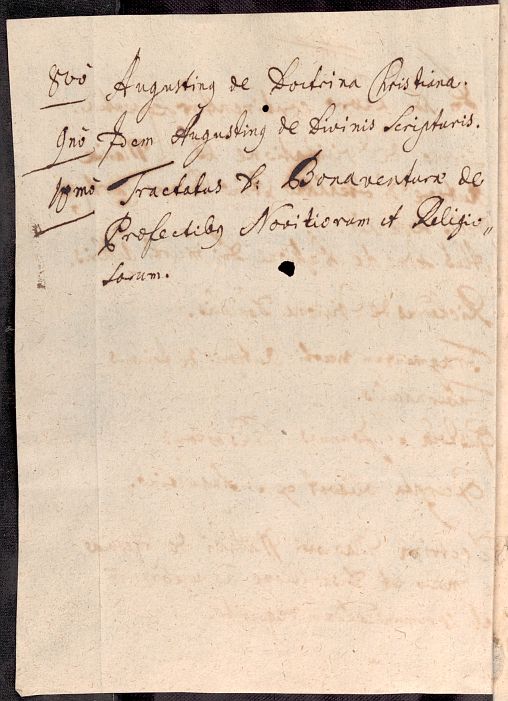 8vo Augustinꝰ de Doctrina Christiana.
9no Idem Augustinꝰ de Divinis Scripturis.
10mo Tractatus S. Bonaventuræ de
Profectibꝰ Novitiorum et Religio„
sorum.